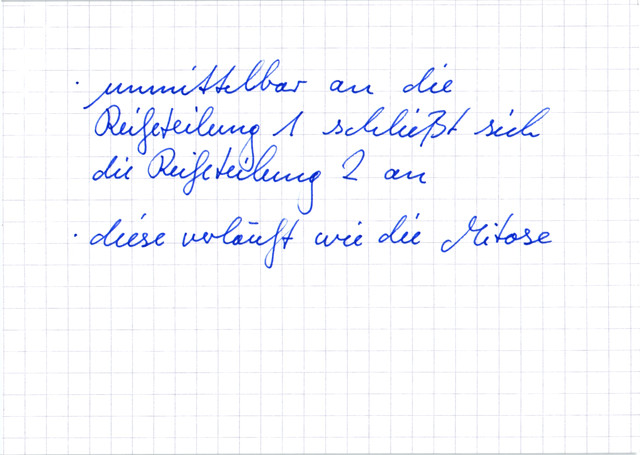 · unmittelbar an die
Reifeteilung 1 schließt sich
die Reifeteilung 2 an
· diese verläuft wie die Mitose